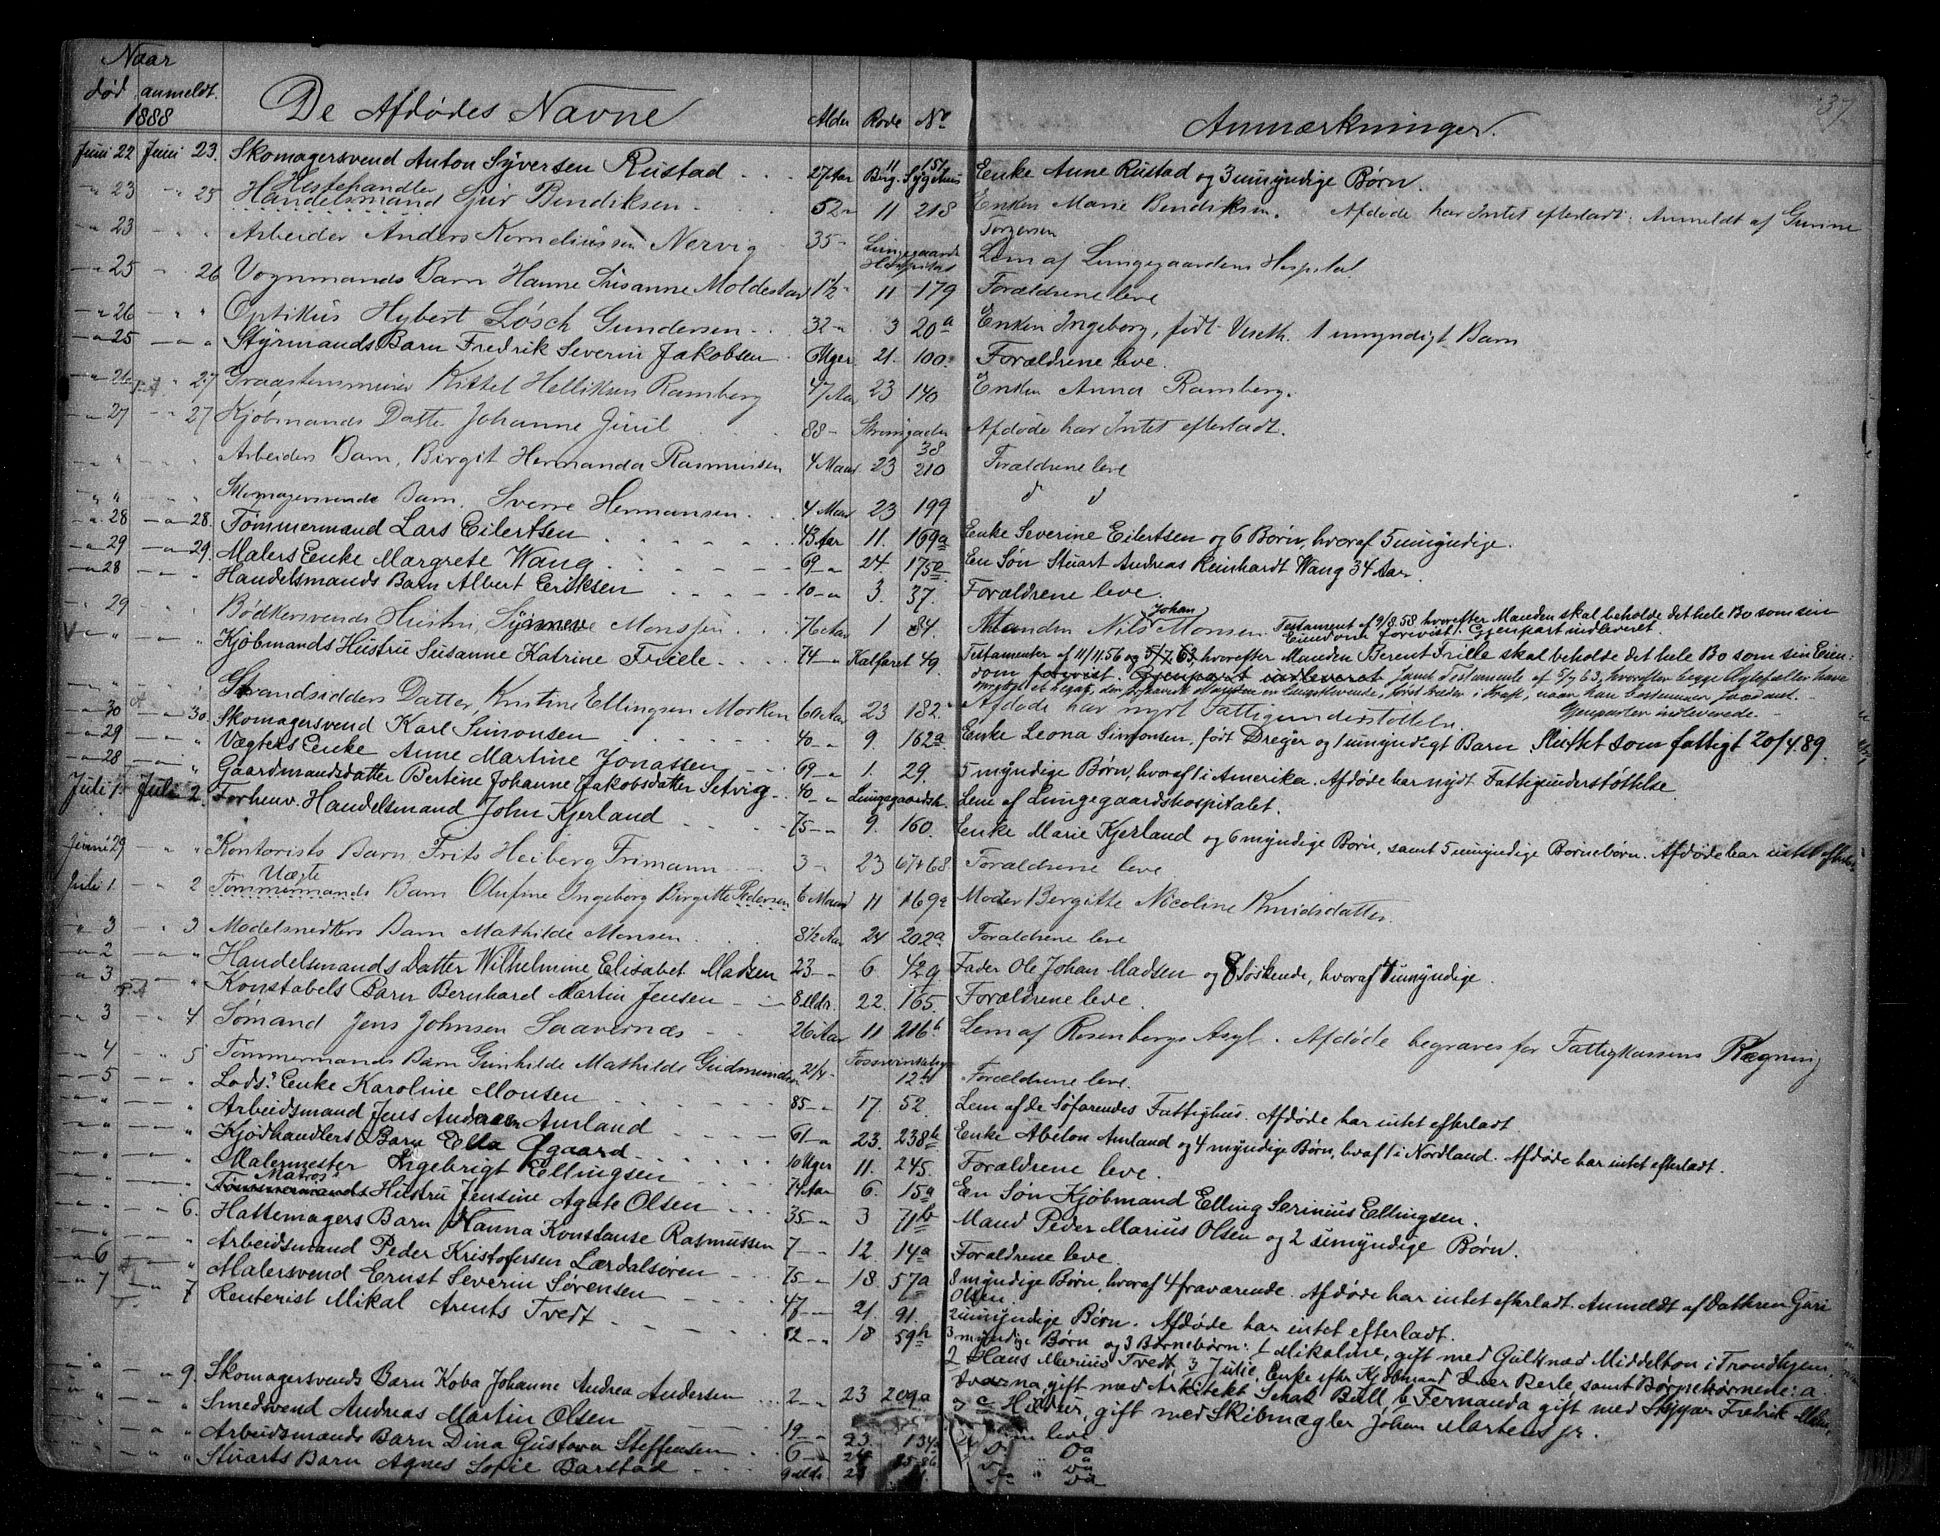 37
Naar
død anmeldt. De Afdødes Navne Alder Rode No Anmærkninger.
1888
Juni 22 Juni 23. Skomagersvend Anton Syversen Rustad 27 Aar 11 151 Berg. Sygehus Enke Anne Rustad og 3 umyndige Børn.
Hestehandler
" 23 " 25 Handelsmand Sjur Bendiksen 52 " 11 218 Enken Marie Bendiksen. Afdøde har Intet efterladt. Anmeldt af Gunine
Torgersen
" 23 Arbeider Anders Korneliussen Nervig 35 " Lungegaards Hospital Lem af Lungegaardens Hospital
" 25 " 26 Vognmands Barn Hanne Susanne Moldestad 1½ " 11 179 Forældrene leve
" 26 " " Optikus Hybert Løsch Gundersen 32 " 3 20a Enken Ingeborg, født Venth. 1 umyndigt Barn
" 25 " " Styrmands Barn Fredrik Severin Jakobsen 6 Uger 21. 100. Forældrene leve.
" 26 " 27 Graastensmurer Kittel Helliksen Ramberg 47 Aar 23 140 Enken Anna Ramberg.
" 27 " 27 Kjøbmands Datter Johanne Juul 88 " Strandgaden 38 Afdøde har Intet efterladt.
" " " Arbeiders Barn, Birgit Hermanda Rasmussen 4 Maan 23 210 Forældrene leve
" " " Skomagersvends Barn, Sverre Hermansen 4 Maan 23 199 d d
" 28 " 28. Tømmermand Lars Eilertsen 43 Aar 11. 169a Enke Severine Eilertsen og 6 Børn, hvoraf 5 umyndige.
" 29 " 29. Malers Enke Margrete Wang 69 " 24 175a En Søn Stuart Andreas Reinhardt Wang 34 Aar.
" 28 " " Handelsmands Barn Albert Eriksen 10 " 3. 37. Forældrene leve.
" 29 " " Bødkersvends Hustru, Synneve Monsen 76 Aar 1 84. Manden Nils Johan Monsen. Testament af 9/8.58 hvorefter Manden skal beholde det hele Bo som sin
Eiendom forevist. Gjenpart indleveret.
V " " " Kjøbmands Hustru Susanne Katrine Friele 74 " Kalfaret 49. Testamenter af 11/11.56 og 5/7.63, hvorefter Manden Berent Friele skal beholde det hele Bo som sin Eien-
dom forevist. Gjenpart indleveret samt Testamente af 5/7 63, hvorefter begge Ægtefæller have
Gjenparter indleverede.
" " " Strandsidders Datter, Kristine Ellingsen Morken 60 Aar 23 182. Afdøde har nydt Fattigunderstøttelse.
" 30 " 30. Skomagersvend Karl Simonsen 40 " 9. 162a Enke Leona Simonsen, født Dreyer og 1 umyndigt Barn Sluttet som fattigt 20/4 89.
" 29 " " Vægters Enke Anne Martine Jonassen 69 " 1. 29. 5 myndige Børn, hvoraf 1 i Amerika. Afdøde har nydt Fattigunderstøttelse
" 28 " " Gaardmandsdatter Bertine Johanne Jakobsdatter Setvig 40 " Lungegaardsh. Lem af Lungegaardshospitalet.
Juli 1 Juli 2. Forhenv. Handelsmand John Kjerland 75 " 9. 160. Enke Marie Kjerland og 6 myndige Børn, samt 5 umyndige Børnebørn. Afdøde har intet efterladt
Juni 29 " " Kontorists Barn, Frits Heiberg Frimann 3 " 23 67 & 68 Forældrene leve
Uægte
Juli 1. " 2 Tømmermands Barn Olufine Ingeborg Birgitte Pedersen 6 Maan 11 169a Moder Bergitte Nicoline Knudsdatter
" 3 " 3 Modelsnedkers Barn Mathilde Monsen 8½ Aar 24 202a Forældrene leve
" 2 " " Handelsmands Datter Wilhelmine Elisabet Madsen 23 " 6. 42g. Fader Ole Johan Madsen og 8 Søskende, hvoraf 4 umyndige.
" 3 " " Konstabels Barn Bernhard Martin Jensen 8 Mdr. 22. 165. Forældrene leve.
" 3 " 4 Sømand Jens Johnsen Saavernæs 26 Aar 11 216b Lem af Rosenbergs Asyl. Afdøde begraves for Fattigkassens Regning
" 4 " 5 Tømmermands Barn Gunhilde Mathilde Gudmundsen 2¼ " 12 Forældrene leve.
" 5 " " Lods' Enke Karoline Monsen 85 " 17. 52. Lem af de Søfarendes Fattighus. Afdøde har intet efterladt.
" " " Arbeidsmand Jens Andreas Amland 61 " 23. 238b Enke Abelon Amland og 4 myndige Børn, hvoraf 1 i Nordland. Afdøde har intet efterladt.
" " " Kjødhandlers Barn Ella Øgaard 10 Uger 11. 245. Forældrene leve.
" " " Malermester Ingebrigt Ellingsen 74 Aar 6. 15a En Søn Kjøbmand Elling Serinius Ellingsen.
Matros
" " " Tømmermands Hustru Jensine Agate Olsen 35 " 3 71b Mand Peder Marius Olsen og 2 umyndige Børn.
" " 6. Hattemagers Barn Hanna Konstanse Rasmussen 7 " 12. 14a Forældrene leve.
" " " Arbeidsmand Peder Kristofersen Lærdalsøren 75 " 18. 57a 8 myndige Børn, hvoraf 4 fraværende. Afdøde har intet efterladt. Anmeldt af Datteren Guri
Olsen.
" 6 " " Malersvend Ernst Severin Sørensen 47 " 21. 91. 2 umyndige Børn. Afdøde har intet efterladt.
" 7 " 7 Renterist Mikal Arents Tvedt 82 " 18 59b 3 myndige Børn og 3 Børnebørn: 1 Mikaline, gift med Guldsmed Middelton i Trondhjem,
2 Hans Marius Tvedt 3 Julie, Enke efter Kjøbmand Iver Berle, samt Børnebørnene: a.
gift med Arkitekt Schak Bull, b. Fernanda gift med Skipper Fredrik
og c. gift med Skibmægler Johan Martens jr.
" " 9. Skomagersvends Barn Koba Johanne Andrea Andersen 2 " 23 209a
" " " Smedsvend Andreas Martin Olsen 19 " 23. 134 leve
" " " Arbeidsmands Barn Dina Gustava Steffensen 6 " 24 Do " Do
" " " Stuarts Barn Agnes Sofie Barstad 9 Mdr. 23 Do " Do